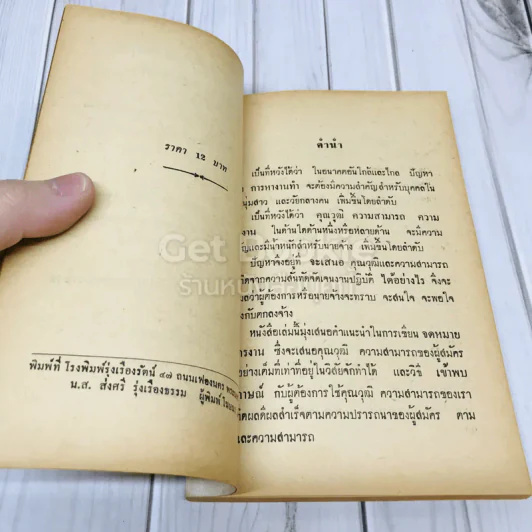 ราคา 12 บาท
พิมพ์ที่ โรงพิมพ์รุ่งเรืองรัตน์ ๔๗ ถนนเฟื่องนคร
น.ส. สงศรี รุ่งเรืองธรรม ผู้พิมพ์
คำนำ
เป็นที่หวังได้ว่า ในอนาคตอันใกล้และไกล ปัญหา
การหางานทำ จะต้องมีความสำคัญสำหรับบุคคลใน
หนุ่มสาว และวัยกลางคน เพิ่มขึ้นโดยลำดับ
เป็นที่หวังได้ว่า คุณวุฒิ ความสามารถ ความ
งาน ในด้านใดด้านหนึ่งหรือหลายด้าน จะมีความ
ญและมีน้ำหนักสำหรับนายจ้าง เพิ่มขึ้นโดยลำดับ
ปัญหาจึงอยู่ที่ จะเสนอ คุณวุฒิและความสามารถ
ได้อย่างไร จึงจะ
ผู้ต้องการหรือนายจ้างจะทราบ จะสนใจ จะพอใจ
กับตกลงจ้าง
หนังสือเล่มนี้มุ่งเสนอคำแนะนำในการเขียน จดหมาย
การงาน ซึ่งจะเสนอคุณวุฒิ ความสามารถของผู้สมัคร
อย่างเต็มที่เท่าที่อยู่ในวิสัยจักทำได้ และวิธี เข้าพบ
กับผู้ต้องการใช้คุณวุฒิ ความสามารถของเรา
กิดผลดีผลสำเร็จตามความปรารถนาของผู้สมัคร ตาม
และความสามารถ
Get
ร้านหนังสือ